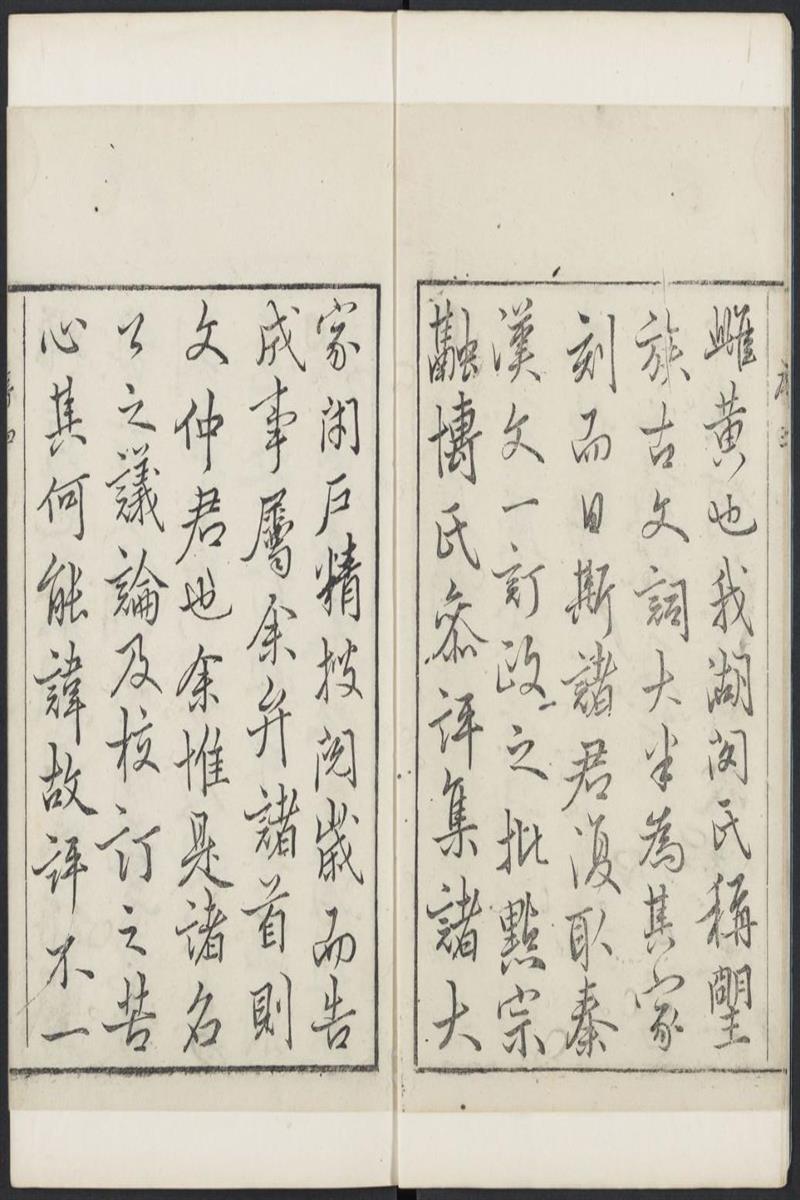 雌黄也我湖閔氏稱朢
族古文詞大半為其家
刻而日斯諸君復取秦
漢文一訂政之批點宗
融博氏叅評集諸大
家閉戶精搜閱歲而告
成事屬余弁諸首則
文仲君也余惟是諸名
公之議論及校訂之苦
心其何能諱故評不一
序四